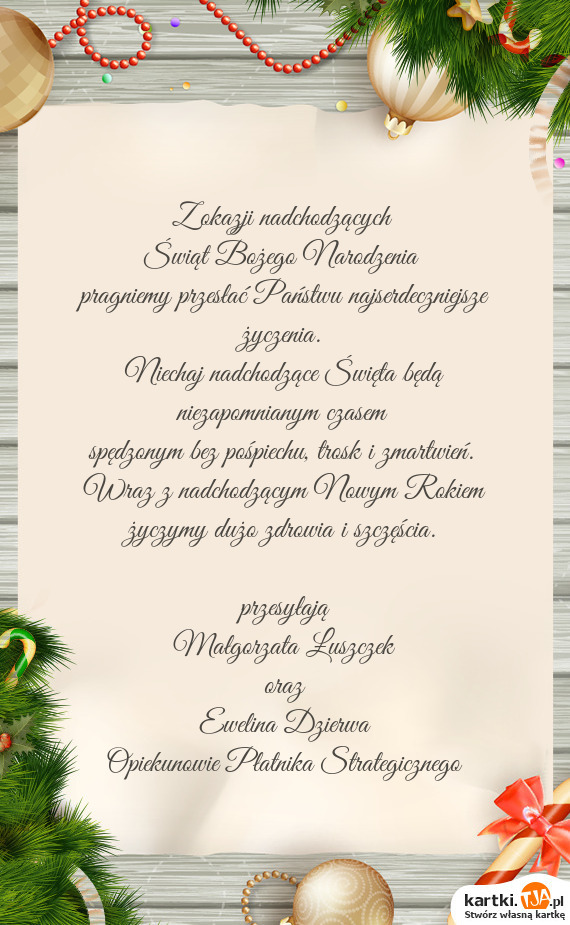 Z okazji nadchodzących
Świąt Bożego Narodzenia
pragniemy przesłać Państwu najserdeczniejsze
życzenia.
Niechaj nadchodzące Święta będą
niezapomnianym czasem
spędzonym bez pośpiechu, trosk i zmartwień.
Wraz z nadchodzącym Nowym Rokiem
życzymy dużo zdrowia i szczęścia.
przesyłają
Małgorzata Łuszczek
oraz
Ewelina Dzierwa
Opiekunowie Płatnika Strategicznego
kartki.TJA.pl
Stwórz własną kartkę